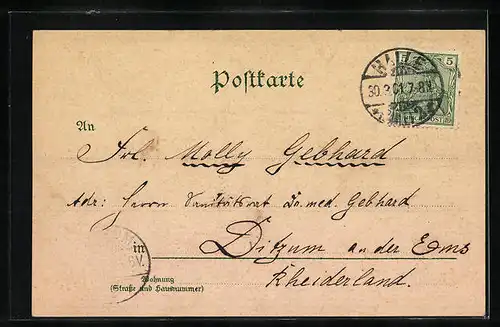 Postkarte
HALLE
30.3.01.7-8V.
5
An
Frl. Molly Gebhard
Adr: Herrn Sanitätsrat Dr. med. Gebhard
in Ditzum an der Ems
Rheiderland.
Wohnung
(Straße und Hausnummer)